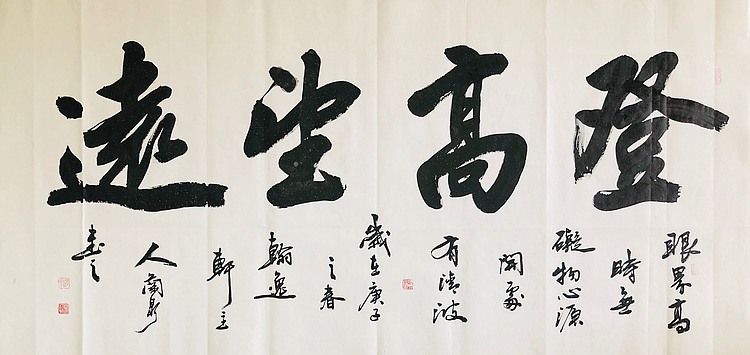 登高望遠
眼界高
時無
礙物心源
開處
有清波
歲在庚子
之春
翰逸
軒主
人蘭
書